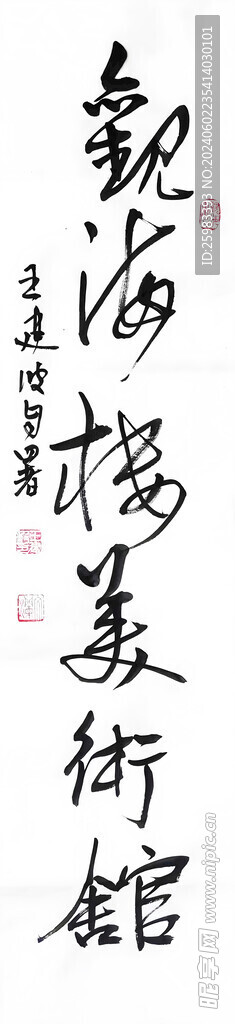 觀海樓美術舘
王建波自署
ID:25983393 NO:20240602235414030101
昵享网 www.nipic.cn